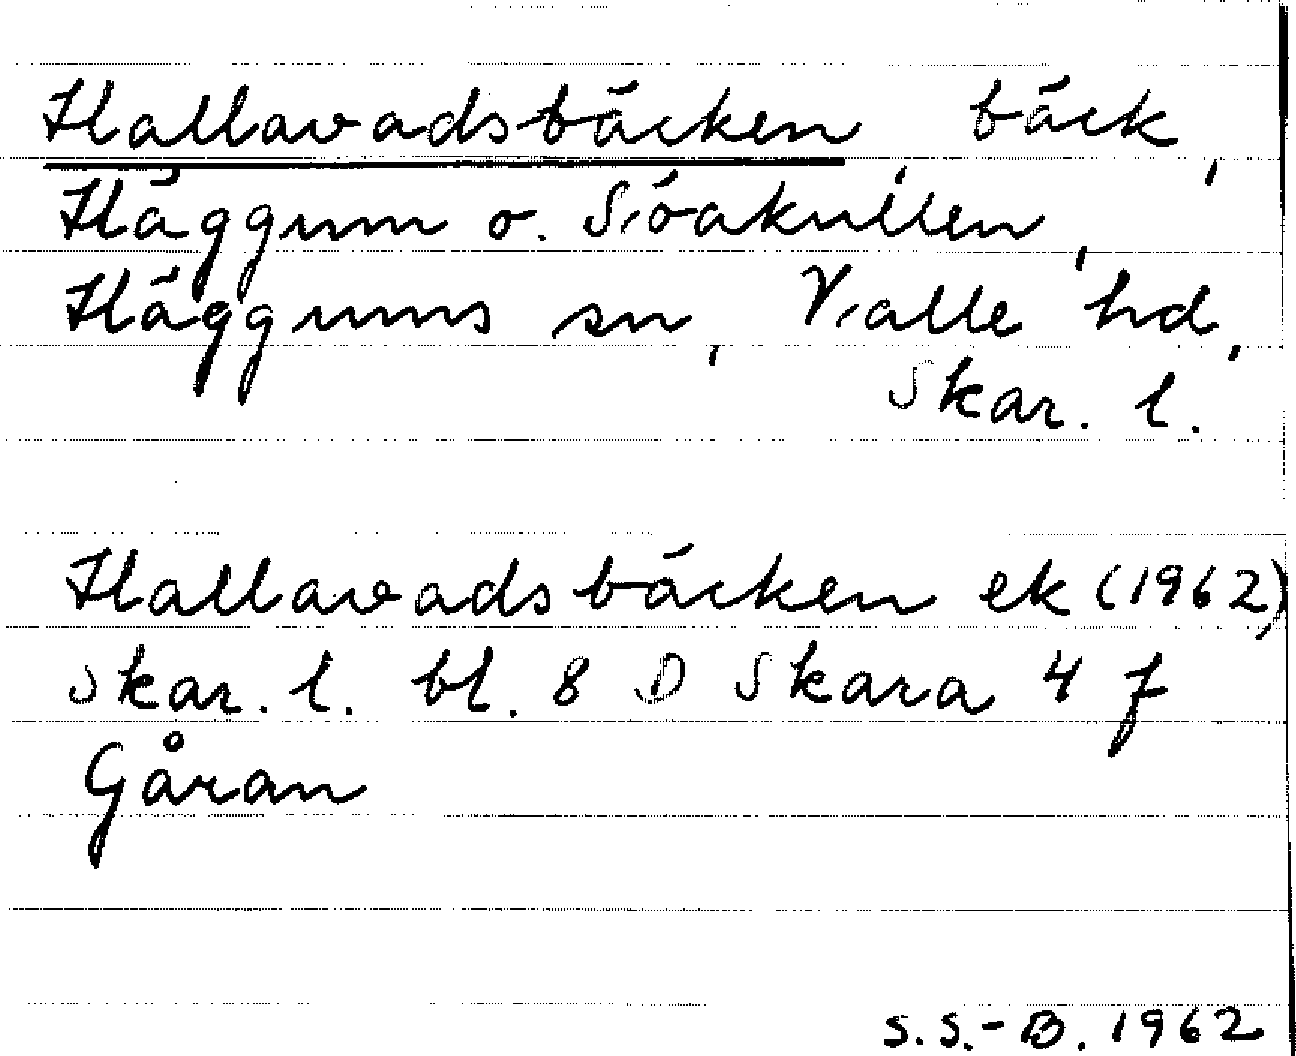 Hallavadsbäcken, bäck,
Häggum o. Siöakullen,
Häggums sn, Valle hd,
Skar. l.
Hallavadsbäcken ek (1962),
Skar. l. bl. 8 D Skara 4 f
Gåran
S.S.-B. 1962